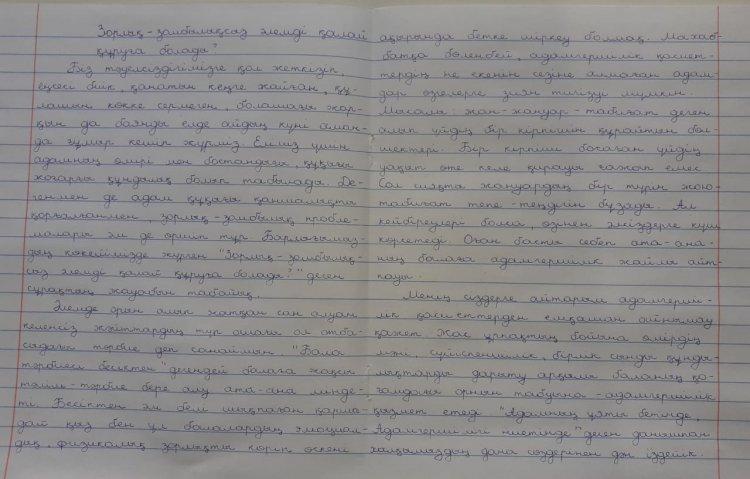 Зорлық-зомбылықсыз әлемді қалай
құруға болады?
Біз тәуелсіздігімізге қол жеткізіп,
еңсесі биік, қанатын кеңге жайған, құ-
лашын көкке сермеген, болашағы жар-
қын да баянды елде айдың күні аман-
да ғұмыр кешіп жүрміз. Еліміз үшін
адамның өмірі мен бостандығы, құқығы
жоғарғы құндылық болып табылады. Де-
генмен де адам құқығы қаншалықты
қорғалғанмен, зорлық-зомбылық пробле-
малары әлі де өршіп тұр. Барлығымыз-
дың көкейімізде жүрген "Зорлық-зомбылық-
сыз әлемді қалай құруға болады?" деген
сұрақтың жауабын табайық.
Әлемде орын алып жатқан сан алуан
келеңсіз жайттардың түп ошағы ол отба-
сындағы тәрбие деп санаймын. "Бала
тәрбиесі бесіктен" дегендей балаға жақсы
тәлім-тәрбие бере алу ата-ана мінде-
ті. Бесіктен әлі белі шықпаған қарша-
дай қыз бен ұл балалардың эмоциял-
дық, физикалық зорлықты көріп өскені
ақырында бетке шіркеу болмақ. Махаб-
батқа бөленбей, адамгершілік қасиет-
тердің не екенін сезіне алмаған адам-
дар өзгелерге зиян тигізуі мүмкін.
Мысалы: жан-жануар-табиғат деген
алып үйдің бір кірпішін құрайтын бөл-
шектері. Бір кірпіші болмаған үйдің
уақыт өте келе қирауы ғажап емес.
Сол сияқты жануардың бір түрін жою
табиғат тепе-теңдігін бұзады. Ал
кейбіреулер болса, өзінен әлсіздерге күш
көрсетеді. Оған басты себеп ата-ана-
ның балаға адамгершілік жайлы айт-
пауы.
Менің сіздерге айтарым адамгерші-
лік қасиеттерден ешқашан айнымау
қажет. Жас ұрпақтың бойына өмірдің
мәні, сүйіспеншілік, бірлік сынды құнды-
лықтарды дарыту арқылы баланың қо-
ғамдағы орнын табуына-адамгершілік
қызмет етеді. "Адамның ұяты бетінде,
Адамгершілігі ниетінде" деген данышпан
халқымыздың дана сөздерінен дәл іздейік.